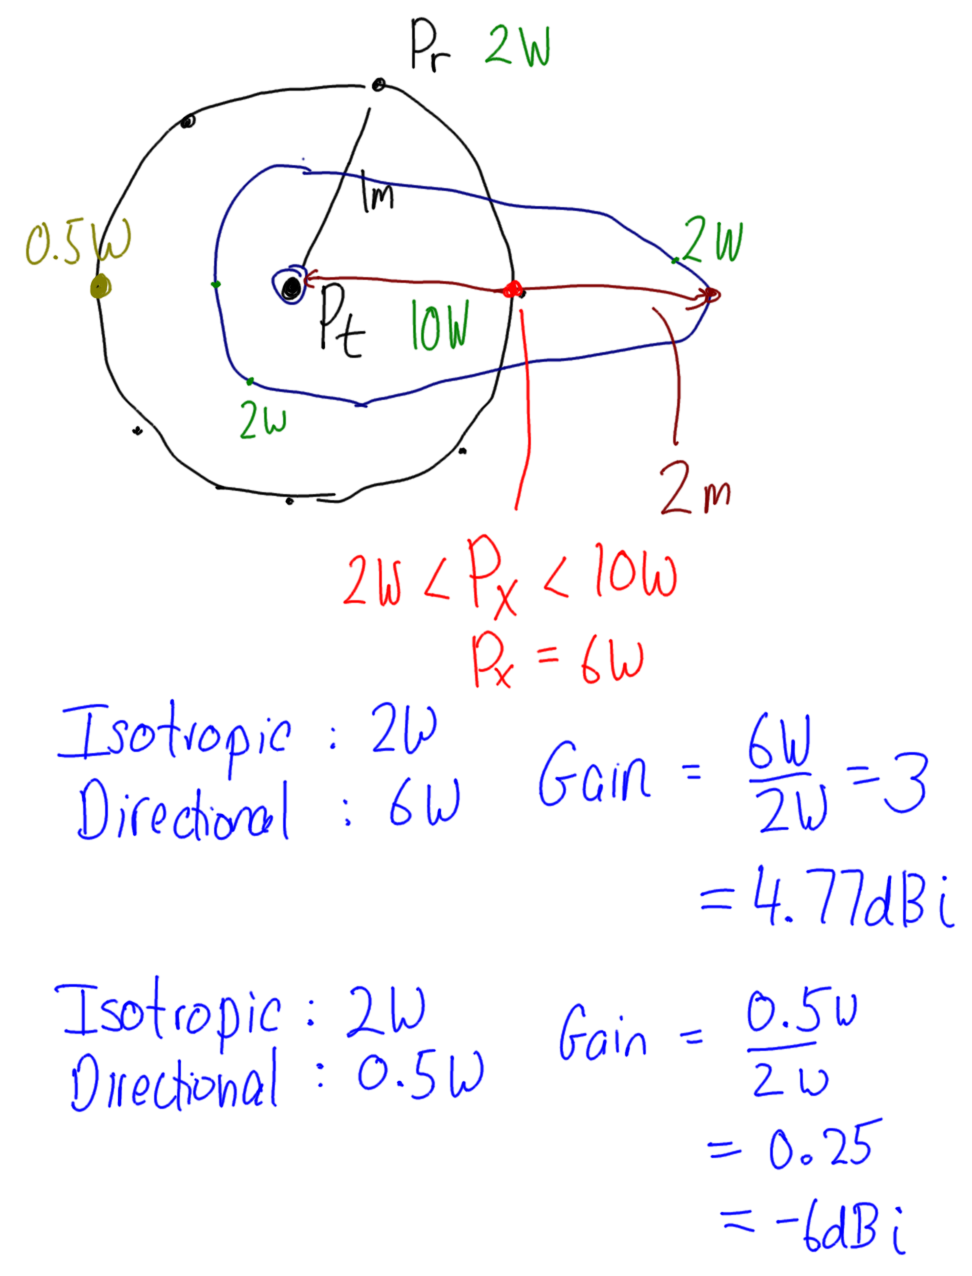 Pr 2W
1m
0.5W
2W
Pt
10W
2W
2m
2W < Px < 10W
Px = 6W
Isotropic : 2W
Directional : 6W
Gain = 6W/2W = 3
= 4.77dBi
Isotropic : 2W
Directional : 0.5W
Gain = 0.5W/2W
= 0.25
= -6dBi